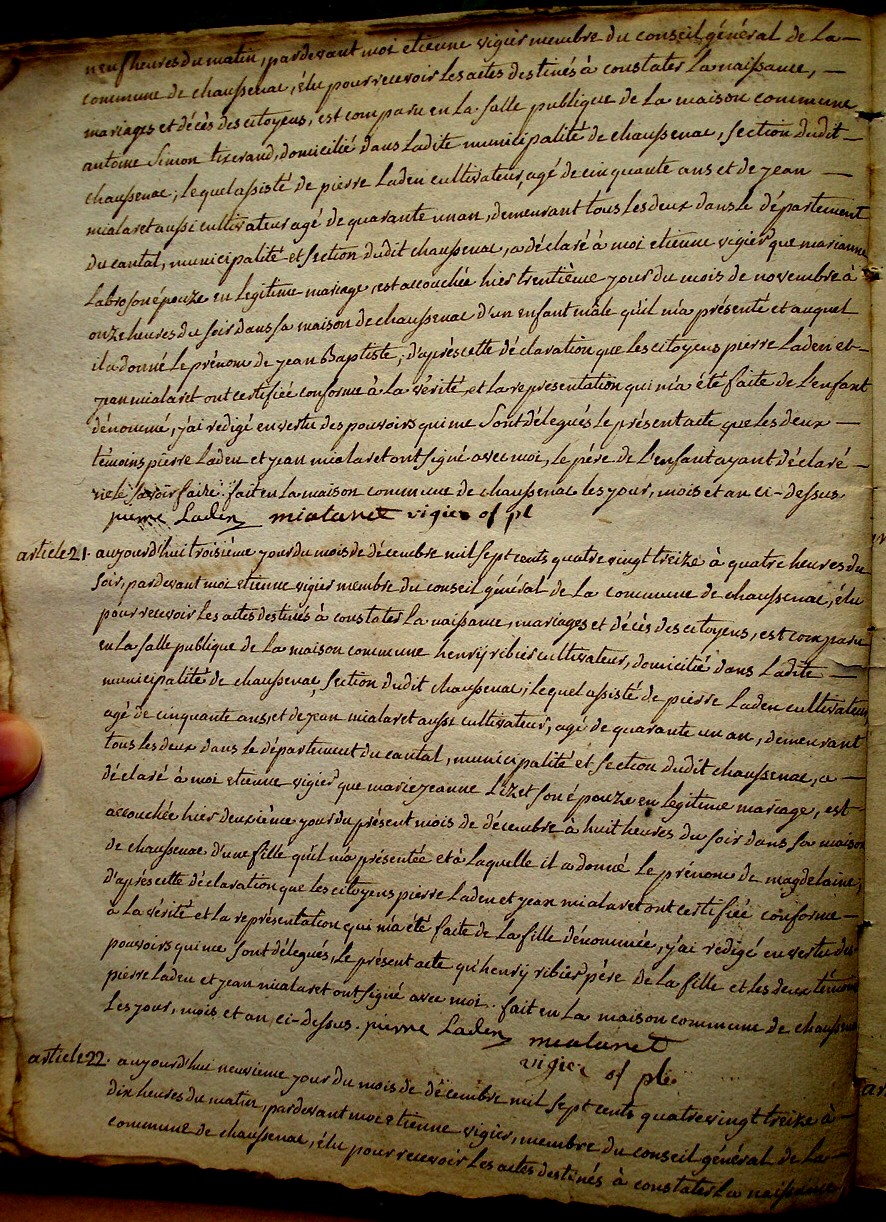 neuf heures du matin, pardevant moi etienne vigier membre du conseil général de la
commune de chaussenac, élu pour recevoir les actes destinés à constater la naissance,
mariages et décès des citoyens, est comparu en la salle publique de la maison commune
antoine Simon tixerand, domicilié dans ladite municipalité de chaussenac, section dudit
chaussenac; lequel assisté de pierre Laden cultivateur, agé de cinquante ans et de jean
mialaret aussi cultivateur agé de quarante un an, demeurant tous les deux dans le département
du cantal, municipalité et section dudit chaussenac, a déclaré à moi etienne vigier que marianne
Labro son épouze en legitime mariage, est accouchée hier trentième jour du mois de novembre à
onze heures du soir dans sa maison de chaussenac d'un enfant mâle qu'il m'a présenté et auquel
il a donné le prénom de jean Baptiste; d'après cette déclaration que les citoyens pierre Laden et
jean mialaret ont certifiée conforme à la vérité et la representation qui m'a été faite de l'enfant
dénommé, j'ai redigé en vertu des pouvoirs qui me sont délegués le présent acte que les deux
témoins pierre Laden et jean mialaret ont signé avec moi, le pére de l'enfant ayant déclaré
ne le savoir faire. fait en la maison commune de chaussenac les jour, mois et an ci-dessus
pierre Laden mialaret vigier of pl
article 21. aujourd'hui troisième jour du mois de décembre mil sept cents quatre vingt treize à quatre heures du
soir, pardevant moi etienne vigier membre du conseil général de la commune de chaussenac, élu
pour recevoir les actes destinés à constater la naissance, mariages et décès des citoyens, est comparu
en la salle publique de la maison commune henry ribier cultivateur, domicilié dans ladite
municipalité de chaussenac, section dudit chaussenac; lequel assisté de pierre Laden cultivateur
agé de cinquante ans, et de jean mialaret aussi cultivateur, agé de quarante un an, demeurant
tous les deux dans le département du cantal, municipalité et section dudit chaussenac, a
déclaré à moi etienne vigier que marie jeanne Lizet son épouze en legitime mariage, est
accouchée hier deuxième jour du présent mois de décembre à huit heures du soir dans sa maison
de chaussenac d'une fille qu'il m'a présentée et à laquelle il a donné le prénom de magdelaine;
d'après cette déclaration que les citoyens pierre Laden et jean mialaret ont certifiée conforme
à la vérité et la représentation qui m'a été faite de la fille dénommée, j'ai redigé en vertu des
pouvoirs qui me sont délegués, le présent acte qu'henry ribier père de la fille et les deux témoins
pierre Laden et jean mialaret ont signé avec moi. fait en la maison commune de chaussenac
les jour, mois et an, ci-dessus. pierre Laden mialaret
vigier of pl
article 22. aujourd'hui neuvieme jour du mois de décembre mil sept cents quatre vingt treize à
dix heures du matin, pardevant moi etienne vigier, membre du conseil général de la
commune de chaussenac, élu pour recevoir les actes destinés à constater la naissance